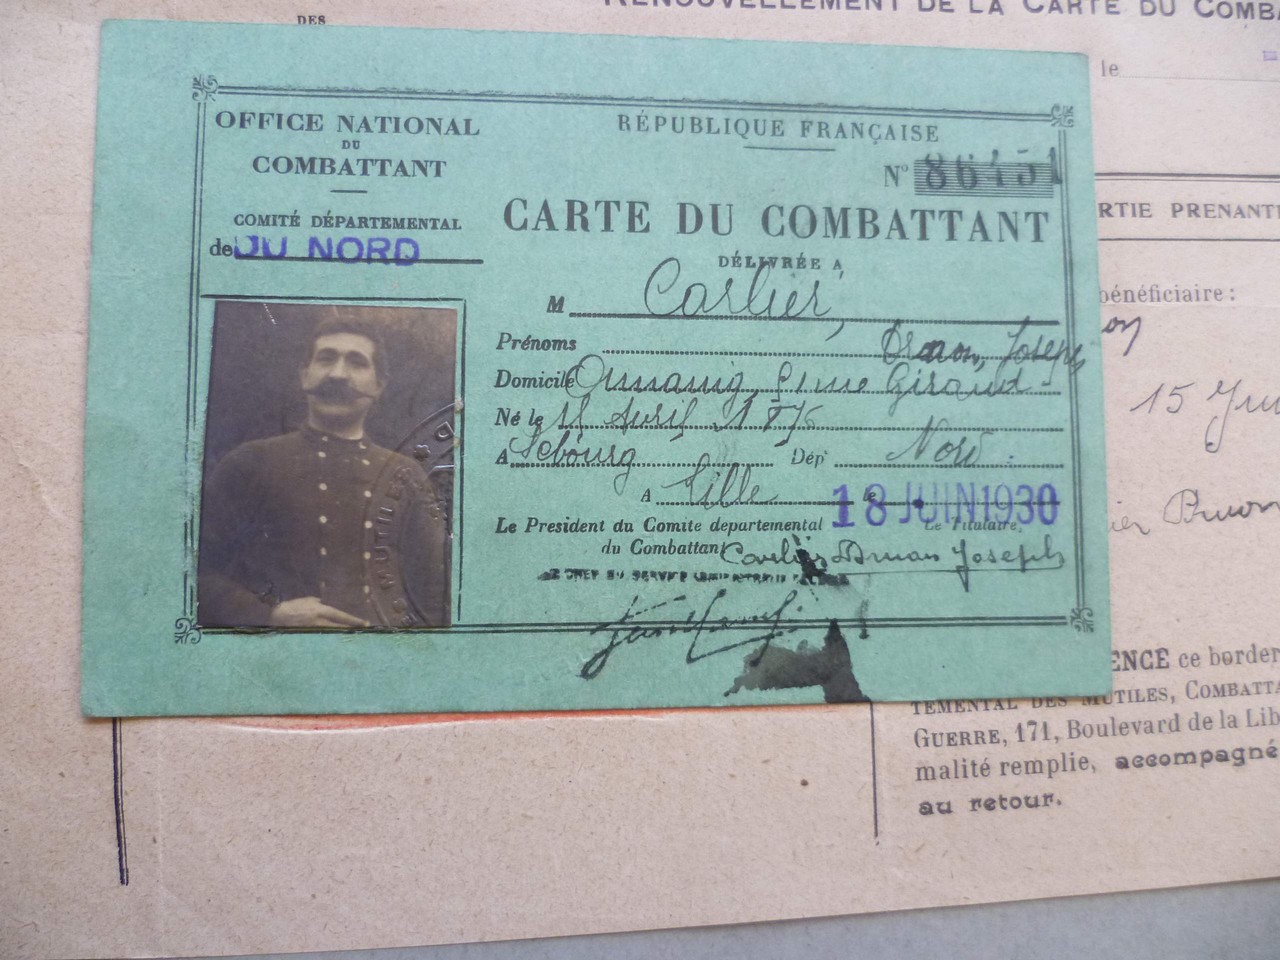 RENOUVELLEMENT DE LA CARTE DU COMBA
DES
le
OFFICE NATIONAL
DU
COMBATTANT
COMITÉ DÉPARTEMENTAL
de DU NORD
RÉPUBLIQUE FRANÇAISE
N° 86151
CARTE DU COMBATTANT
DÉLIVRÉE A
M Carlier,
Prénoms Joseph
Domicile Onnaing, Giraud
Né le Avril 1876
A Sebourg Dépt Nord
A Lille le 18 JUIN 1930
Le Président du Comité départemental Le Titulaire,
du Combattant Carlier Druon Joseph
LE CHEF DU SERVICE ADMINISTRATIF
MUTILÉS
RTIE PRENANT
bénéficiaire :
on
15 Jui
ier Druon
ENCE ce border
TEMENTAL DES MUTILÉS, COMBATTA
GUERRE, 171, Boulevard de la Lib
malité remplie, accompagné
au retour.